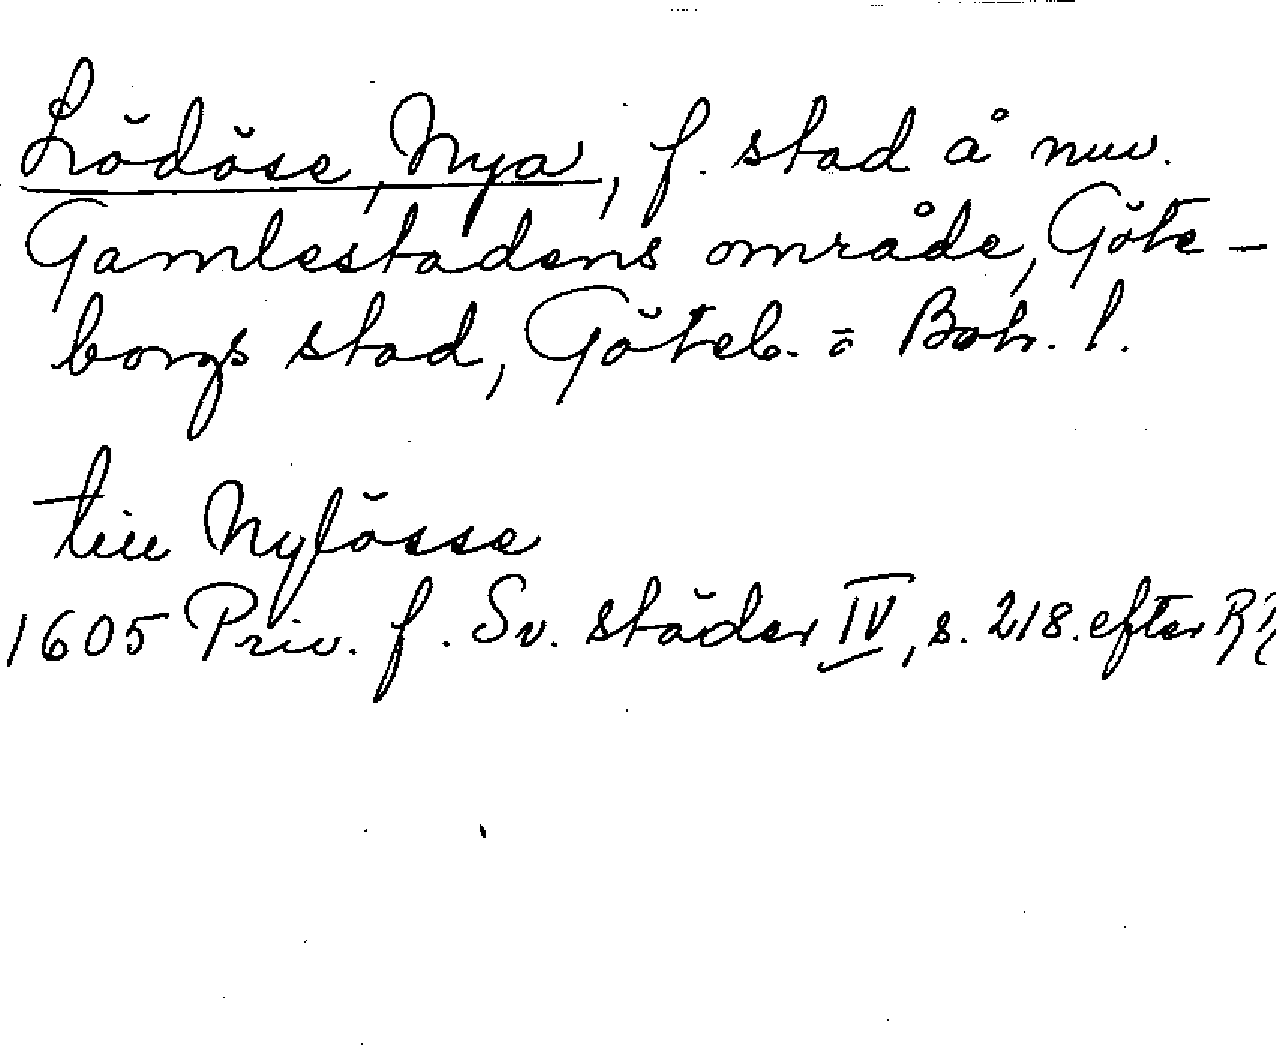 Lödöse, Nya, f. stad å nuv.
Gamlestadens område, Göte-
borgs stad, Göteb. o Boh. l.
till Nylösse
1605 Priv. f. Sv. städer IV, s. 218. efter RR